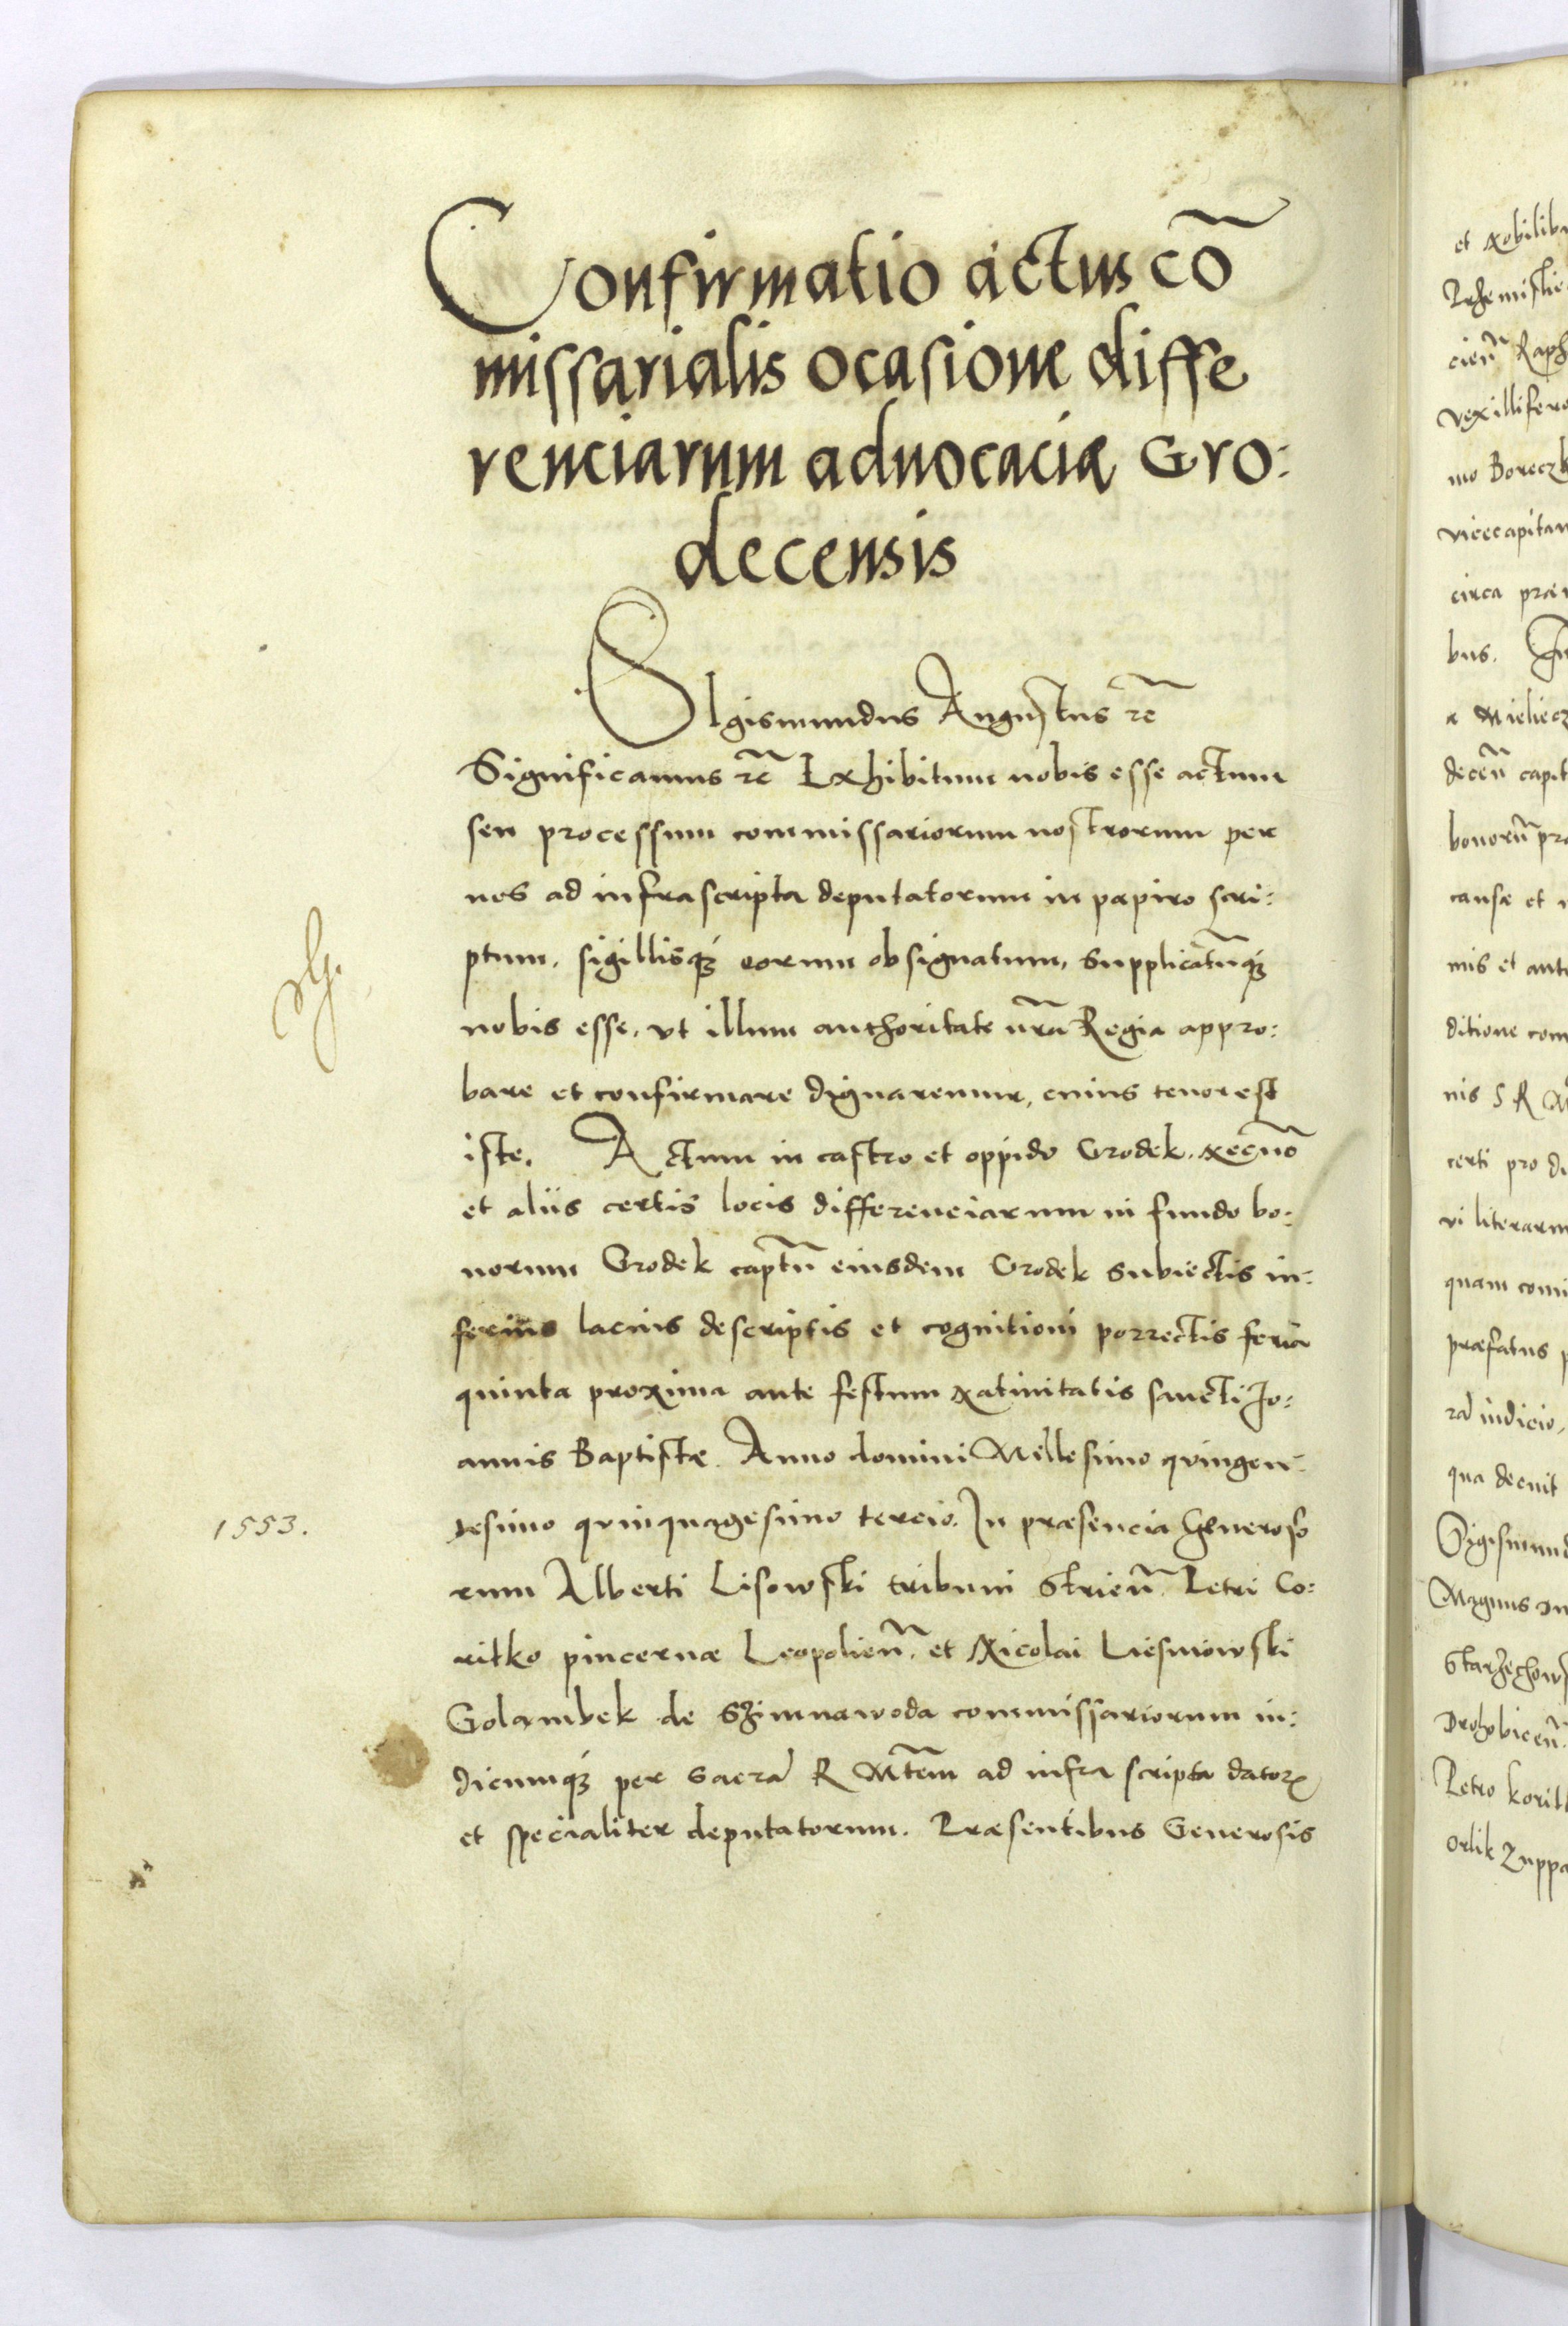 Confirmatio actus cō
missarialis ocasione diffe
renciarum aduocaciæ Gro:
decensis
SIgismundus Augustus rē
Significamus rē Exhibitum nobis esse actum
seu processum commissariorum nostrorum per
nos ad infrascripta deputatorum in papiro scri:
ptum, sigillisq́ eorum obsignatum, Supplicatūq́
nobis esse, vt illum authoritate nr̄a Regia appro:
bare et confirmare dignaremur, cuius tenor est
iste. Actum in castro et oppido Grodek. Necnō
et aliis certis locis differenciarum in fundo bo:
norum Grodek captū eiusdem Grodek subiectis in:
ferius lacius descriptis et cognitioni porrectis feria
quinta proxima ante festum Natiuitatis sancti Jo:
annis Baptistæ. Anno domini Millesimo quingen:
tesimo quinquagesimo tercio. In præsencia Generoso
1553.
rum Alberti Lisowski tribuni Strien̄. Petri Co:
ritko pincernæ Leopolien̄. et Nicolai Liesniowski
Golambek de Szimnawoda commissariorum iu:
dicumq́ per Sacrā R Mtem̄ ad infra scripta dator̄
et specialiter deputatorum. Præsentibus Generosis
et Nobilibu
cien̄ Raph
vexillifero
mo Boreczk
vicecapitan
circa præ
bus. In
a Mieliecz
decen̄ capit
bonorū pr
causæ et
mis et ant
ditione com
nis S R M
certi pro d
vi literarum
quam comi
præfatus p
rā iudicio,
qua decuit
Sigismund
Magnus
Starzechows
Drohobicen̄.
Petro Korit
Orlik Zuppa